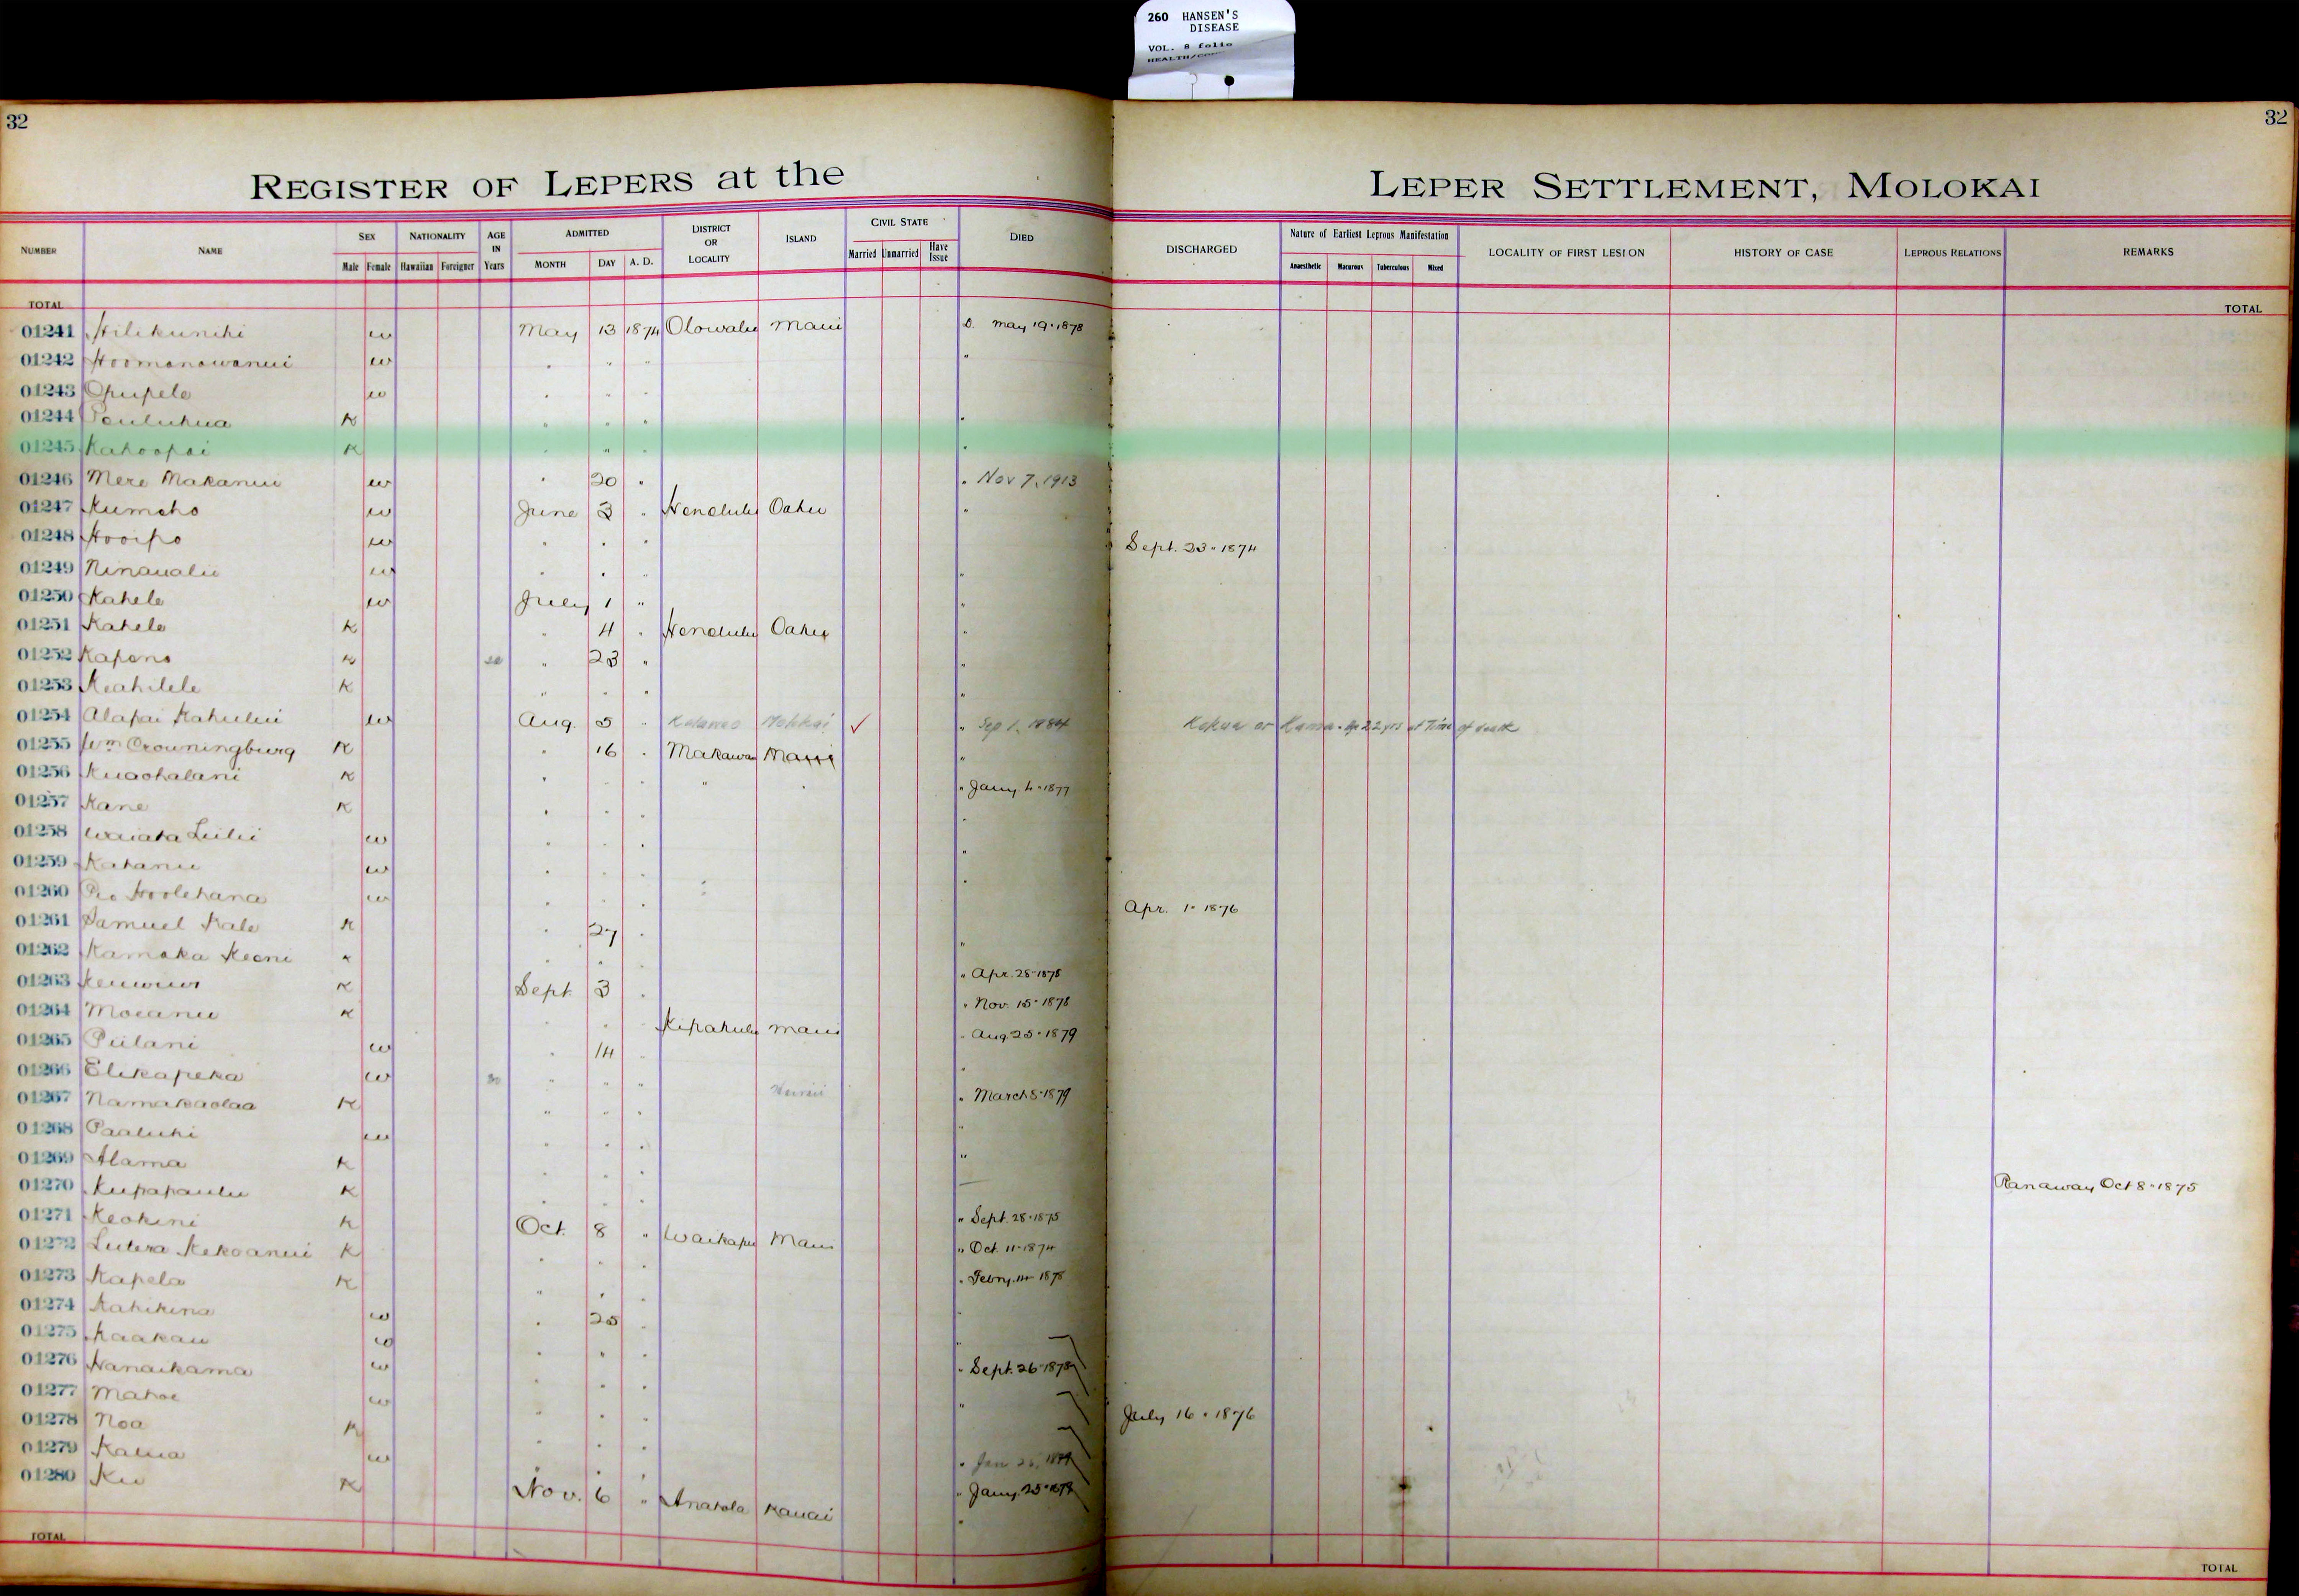 260 HANSEN'S
DISEASE
VOL. 8 folio
32
32
REGISTER OF LEPERS at the LEPER SETTLEMENT, MOLOKAI
NUMBER NAME SEX NATIONALITY AGE IN Years ADMITTED DISTRICT OR LOCALITY ISLAND CIVIL STATE DIED DISCHARGED Nature of Earliest Leprous Manifestation LOCALITY OF FIRST LESION HISTORY OF CASE LEPROUS RELATIONS REMARKS
Male Female Hawaiian Foreigner MONTH DAY A. D. Married Unmarried Have Issue Anaesthetic Macurous Tuberculous Mixed
TOTAL TOTAL
01241 w May 13 1874 Olowalu Maui D. May 19 1878
01242 Hoomanawanui w " " " "
01243 Opupele w " " "
01244 K " " " "
01245 Kahoopai K " " " "
01246 Mere Makanui w " 20 " " Nov 7, 1913
01247 Kumeho w June 3 " Honolulu Oahu "
01248 Hooipo w " " " Sept. 23 1874
01249 Ninaualu w " " " "
01250 Kahele w July 1 " "
01251 Kahele K " 4 " Honolulu Oahu "
01252 Kapono K " 23 " "
01253 Keahilele K " " " "
01254 Alapai Kahului w Aug. 5 " Kalawao Molokai ✓ " Sep 1, 1884 Kokua or Kamaa. Age 22 yrs at Time of death
01255 Wm Crowningburg K " 16 " Makawao Maui "
01256 Kuaohalani K " " " " " " Jany. 4 1877
01257 Kane K " " " "
01258 Waiaka Luilii w " " " "
01259 Kahanu w " " " "
01260 Hoolehana w " " " Apr. 1 1876
01261 Samuel Kale K " 27 " "
01262 Kamaka Keoni K " " " Apr. 28 1878
01263 K Sept 3 " " Nov. 15 1878
01264 Moeanu K " " " Kipahulu Maui " Aug 25 1879
01265 Piilani w " 14 " "
01266 Elikapeka w 30 " " " Hawaii " March 5 1879
01267 Namakaolaa K " " " "
01268 Paaluhi w " " " "
01269 Alama K " " "
01270 Kupapaulu K " " " " Sept. 28 1875 Ranaway Oct 8 1875
01271 Keokini K Oct. 8 " Waikapu Maui " Oct. 11 1874
01272 Lutera Kekoanui K " " " " Febry. 14 1878
01273 Kapela K " " " "
01274 Kahikina w " 25 " "
01275 Kaakau w " " " " Sept. 26 1878
01276 Nanaikama w " " " "
01277 Mahoe w " " " July 16 1876
01278 Noa K " " "
01279 Kalua w " " " " Jany. 25
01280 Ku K Nov. 6 " Anahola Kauai "
TOTAL TOTAL